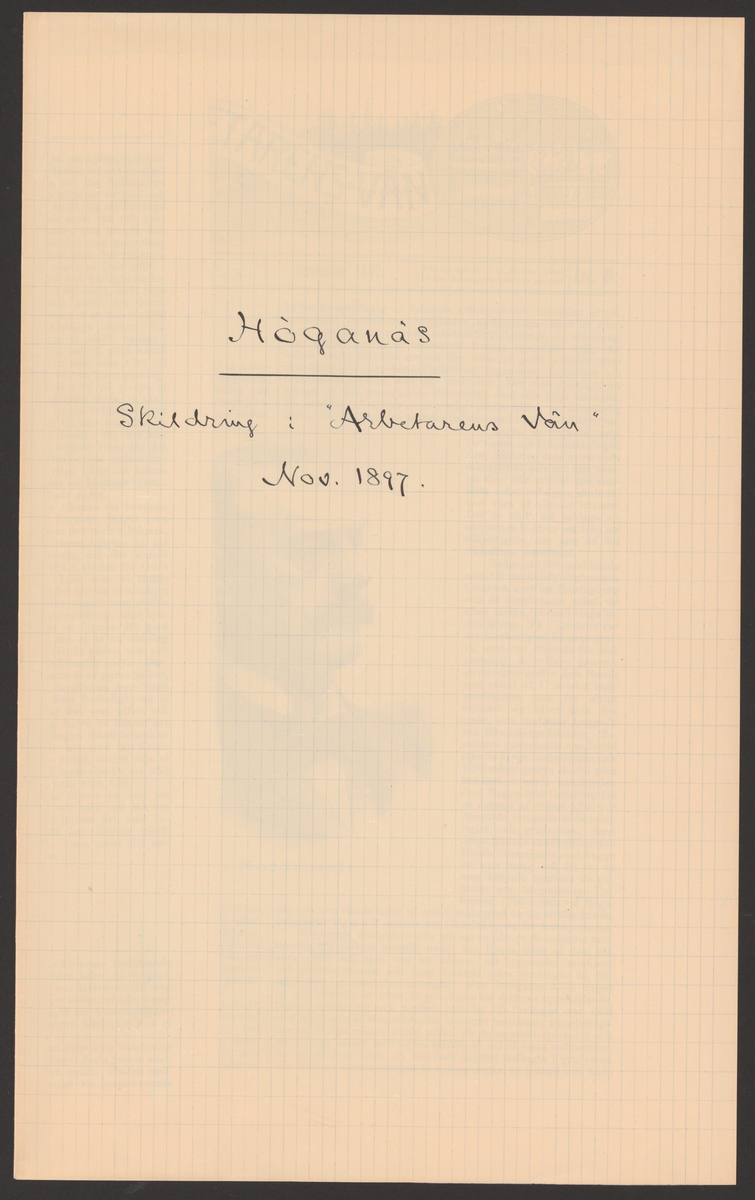 Höganäs
Skildring i "Arbetarens Vän"
Nov. 1897.